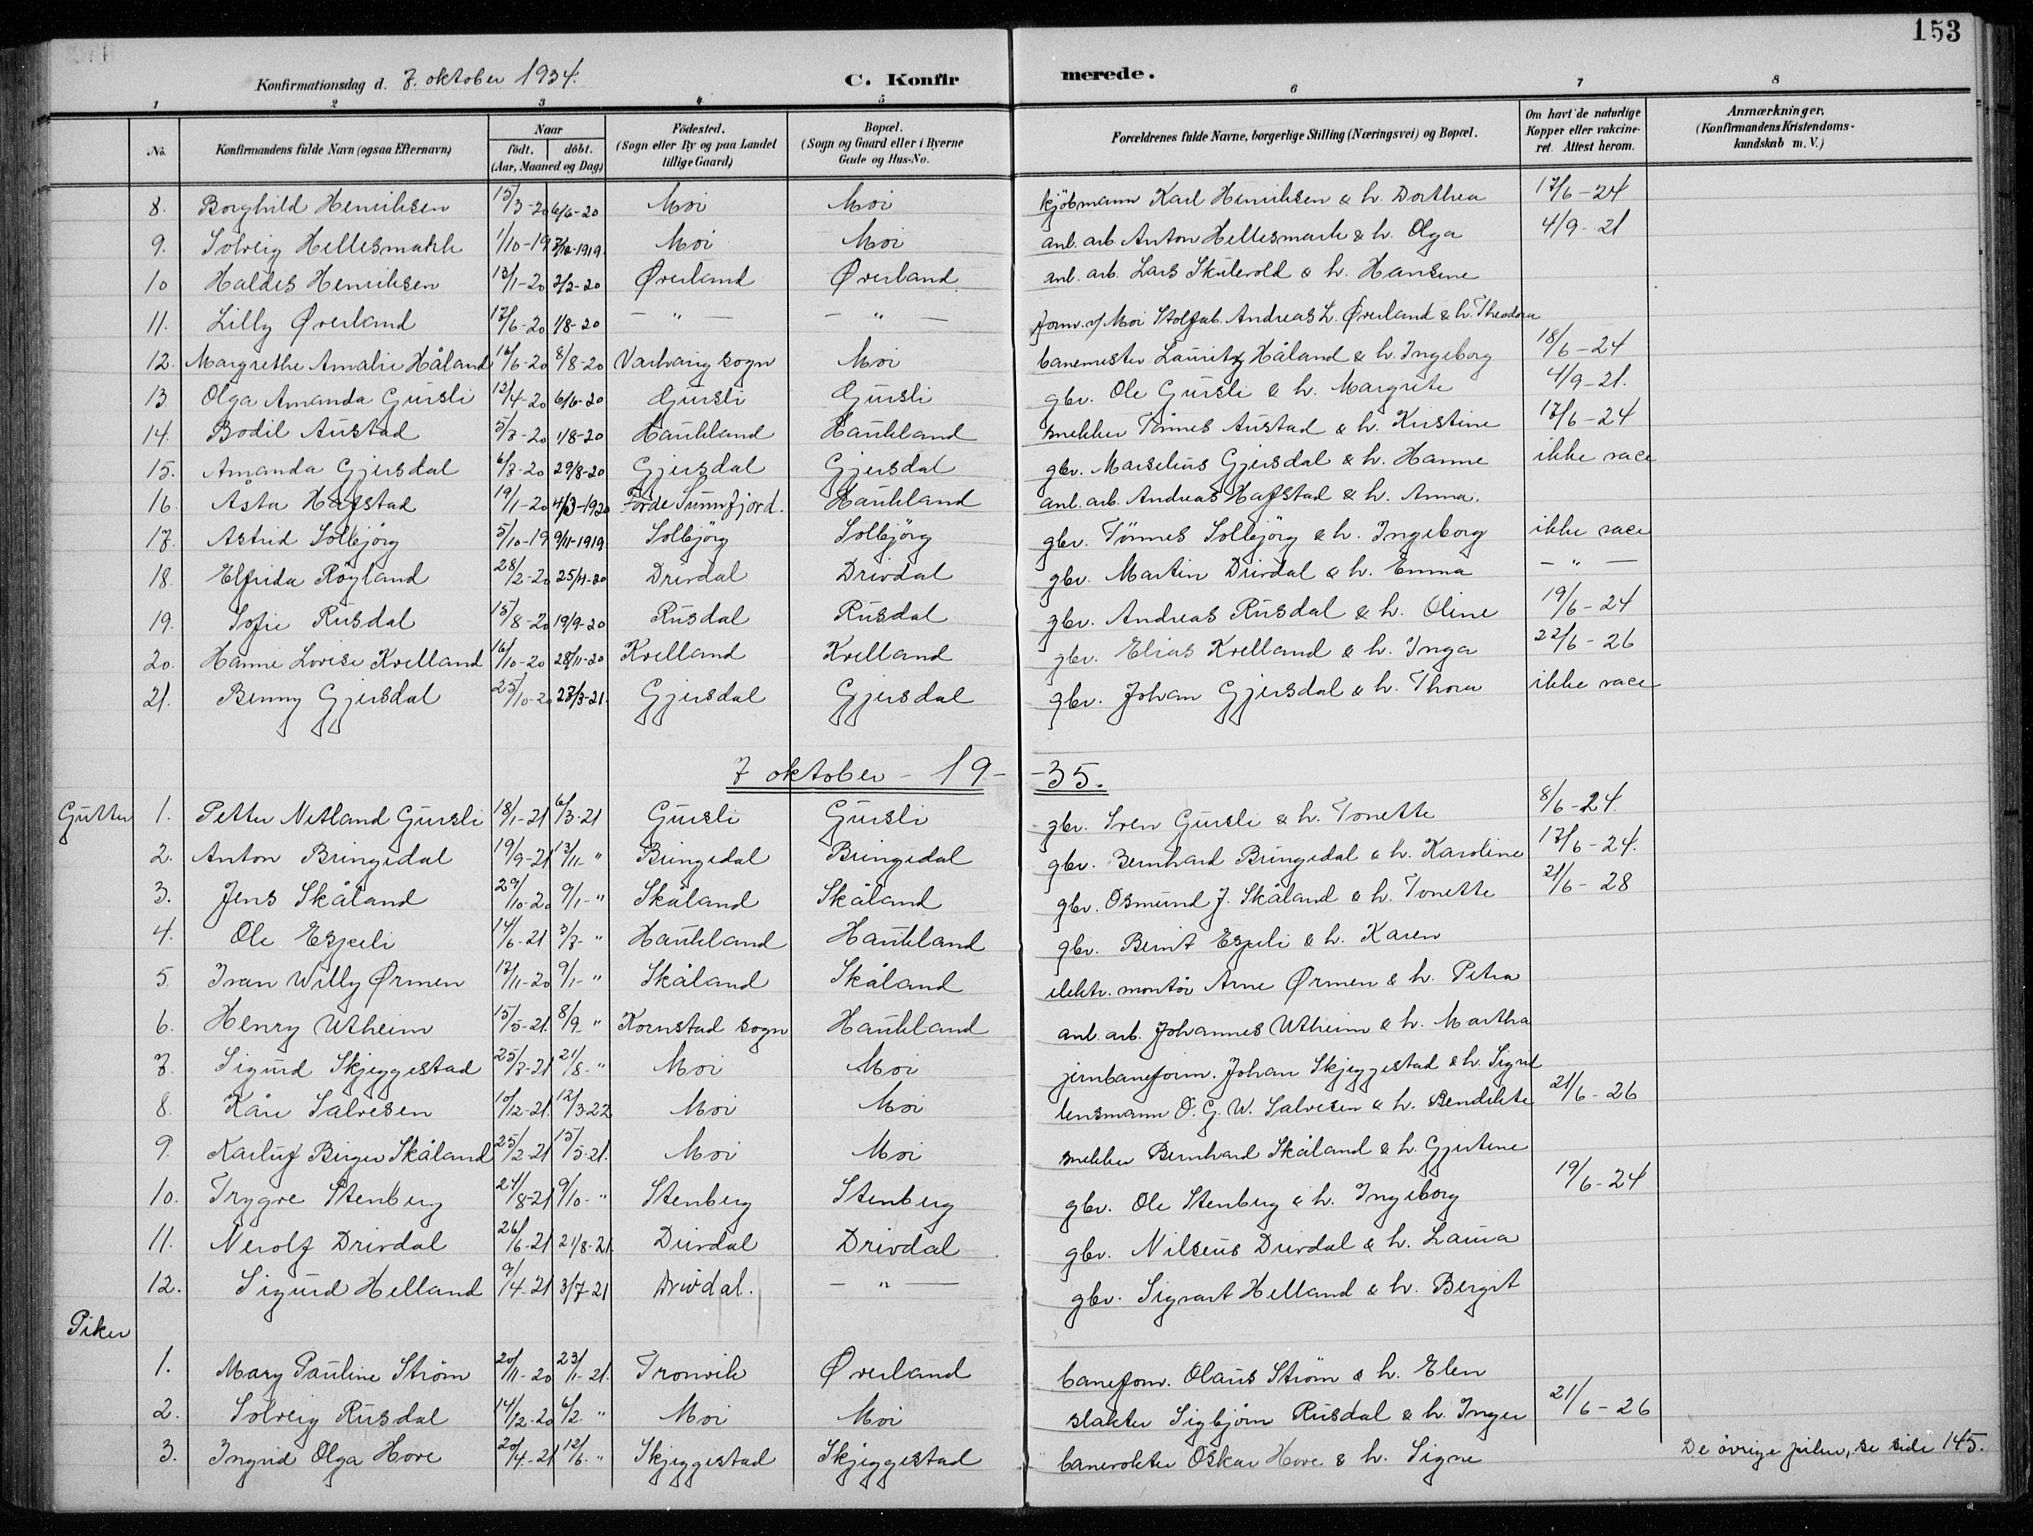 153
Konfirmationsdag d. 7. oktober 1934. C. Konfirmerede.
1 2 3 4 5 6 7 8
No. Konfirmandens fulde Navn (ogsaa Efternavn) Naar födt. döbt. (Aar, Maaned og Dag) Födested. (Sogn eller By og paa Landet tillige Gaard) Bopæl. (Sogn og Gaard eller i Byerne Gade og Hus-No. Forældrenes fulde Navne, borgerlige Stilling (Næringsvei) og Bopæl. Om havt de naturlige Kopper eller vakcineret. Attest herom. Anmærkninger, (Konfirmandens Kristendomskundskab m. V.)
8. Borghild Henriksen 15/3-20 6/6-20 Moi Moi kjöbmann Karl Henriksen & h. Dorthea 17/6-24
9. Solveig Hellesmark 1/10-19 7/12-1919. Moi Moi anl. arb. Anton Hellesmark & h. Olga 4/9-21
10 Haldis Henriksen 13/1-20 2/2-20 Øverland Øverland anl. arb. Lars Skulevold & h. Hansine
11. Lilly Øverland 17/6-20 1/8-20 — " — — " — form. v/ Moi Stolfab. Andreas L. Øverland & h. Theodora
12. Margrethe Amalie Håland 16/6-20 8/8-20 Varhaug sogn Moi banemester Lauritz Håland & h. Ingeborg 18/6-24
13 Olga Amanda Gursli 12/4-20 6/6-20 Gursli Gursli gbr. Ole Gursli & h. Margrete 4/9-21.
14. Bodil Austad 5/7-20 1/8-20 Haukland Haukland snekker Tönnes Austad & h. Kristine 17/6-24
15. Amanda Gjersdal 6/7-20 29/8-20 Gjersdal Gjersdal gbr. Marselius Gjersdal & h. Hanne ikke vacc
16. Åsta Hafstad 19/1-20 4/3-1920 Förde Sunnfjord. Haukland anl. arb. Andreas Hafstad & h. Anna.
17. Astrid Solbjörg 5/10-19 9/11-1919 Solbjörg Solbjörg gbr. Tönnes Solbjörg & h. Ingeborg ikke vacc
18. Elfrida Röyland 28/2-20 25/4-20 Drivdal Drivdal gbr. Martin Drivdal & h. Emma — " —
19. Sofie Rusdal 15/8-20 19/9-20 Rusdal Rusdal gbr. Andreas Rusdal & h. Oline 19/6-24
20. Hanne Lovise Kvelland 16/10-20 28/11-20 Kvelland Kvelland gbr. Elias Kvelland & h. Inga 22/6-26
21. Benny Gjersdal 25/10-20 27/3-21. Gjersdal Gjersdal gbr. Johan Gjersdal & h. Thora ikke vacc
7 oktober - 19- -35.
Gutter 1. Petter Netland Gursli 18/1-21 6/3-21 Gursli Gursli gbr. Sven Gursli & h. Tonette 8/6-24.
2. Anton Bringedal 19/9-21 13/11- " Bringedal Bringedal gbr. Bernhard Bringedal & h. Karoline 17/6-24.
3. Jens Skåland 29/10-20 9/1- " Skåland Skåland gbr. Osmund J. Skåland & h. Tonette 21/6-28
4. Ole Espeli 14/6-21 3/7- " Haukland Haukland gbr. Berint Espeli & h. Karen
5. Ivan Willy Ørmen 17/11-20 9/1- " Skåland Skåland elektr. montör Arne Ørmen & h. Petra
6. Henry Utheim 15/5-21. 8/9 " Kornstad sogn Haukland anl. arb. Johannes Utheim & h. Martha
7. Sigurd Skjeggestad 25/7-21 21/8- " Moi Moi jernbaneform. Johan Skjeggestad & h. Sigrid
8. Kåre Salvesen 10/12-21. 12/3-22 Moi Moi lensmann O. G. W. Salvesen & h. Bendikte 21/6-26
9. Karluf Birger Skåland 25/2-21 15/5-21. Moi Moi snekker Bernhard Skåland & h. Gjertine
10. Trygve Stenberg 24/8-21 9/10- " Stenberg Stenberg gbr. Ole Stenberg & h. Ingeborg 19/6-24
11. Nerolf Drivdal 26/6-21 21/8-21. Drivdal Drivdal gbr. Nilseus Drivdal & h. Laura
12. Sigurd Helland 9/4-21 3/7-21 Drivdal. — " — gbr. Sigvart Helland & h. Bergit
Piker
1. Mary Pauline Strøm 20/11-20 23/1-21. Tronvik Øverland baneform. Olaus Strøm & h. Elen
2. Solveig Rusdal 14/12-20 6/2- " Moi Moi slakter Sigbjörn Rusdal & h. Inger 21/6-26
3. Ingrid Olga Hove 20/4-21 12/6- " Skjeggestad Skjeggestad banevokter Oskar Hove & h. Signe De övrige piker, se side 145.